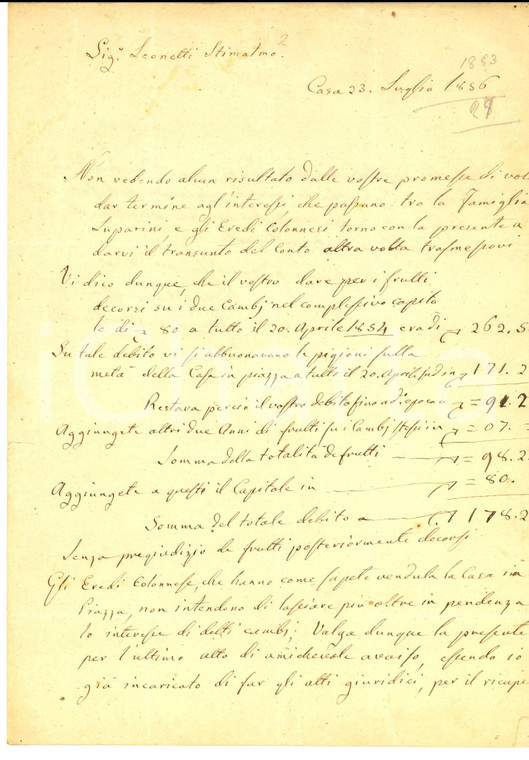 Sig.r Leonetti Stimatmo
1853
Casa 23. Luglio 1856
29
Non vedendo alcun risultato dalle vostre promesse di vol
dar termine agl'interessi, che passano tra la Famiglia
Luparini e gli Eredi Colonnesi torno con la presente a
darvi il transunto del Conto altra volta trasmessovi
Vi dico dunque, che il vostro dare per i frutti
decorsi su i due Cambj nel complessivo capita
le di 80 a tutto il 20. Aprile 1854 era di 262.5
Su tale debito vi si abbuonavano le pigioni sulla
metà della Casa in piazza a tutto il 20. Aprile sud in 171.2
Restava perciò il vostro debito fino a di epoca = 91.2
Aggiungete altri due Anni di frutti su i Cambj stessi in = 07.
Somma della totalità de frutti = 98.2
Aggiungete a questi il Capitale in = 80.
Somma del totale debito a 178.2
Senza pregiudizio de frutti posteriormente decorsi
Gli Eredi Colonnese, che hanno come sapete venduta la Casa in
Piazza, non intendono di lasciare più oltre in pendenza
lo interesse di detti cambj; Valga dunque la presente
per l'ultimo atto di amichevole avviso, essendo io
già incaricato di far gli atti giuridici, per il ricupe